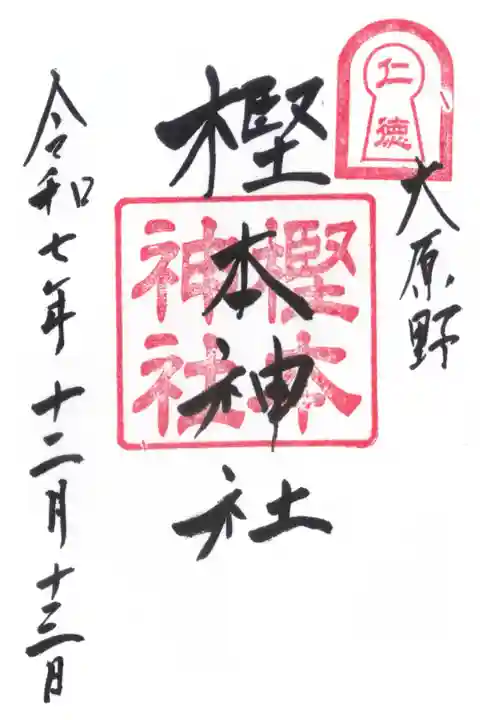 仁
徳
大原野
樫本神社
樫本
神社
令和七年十二月十三日